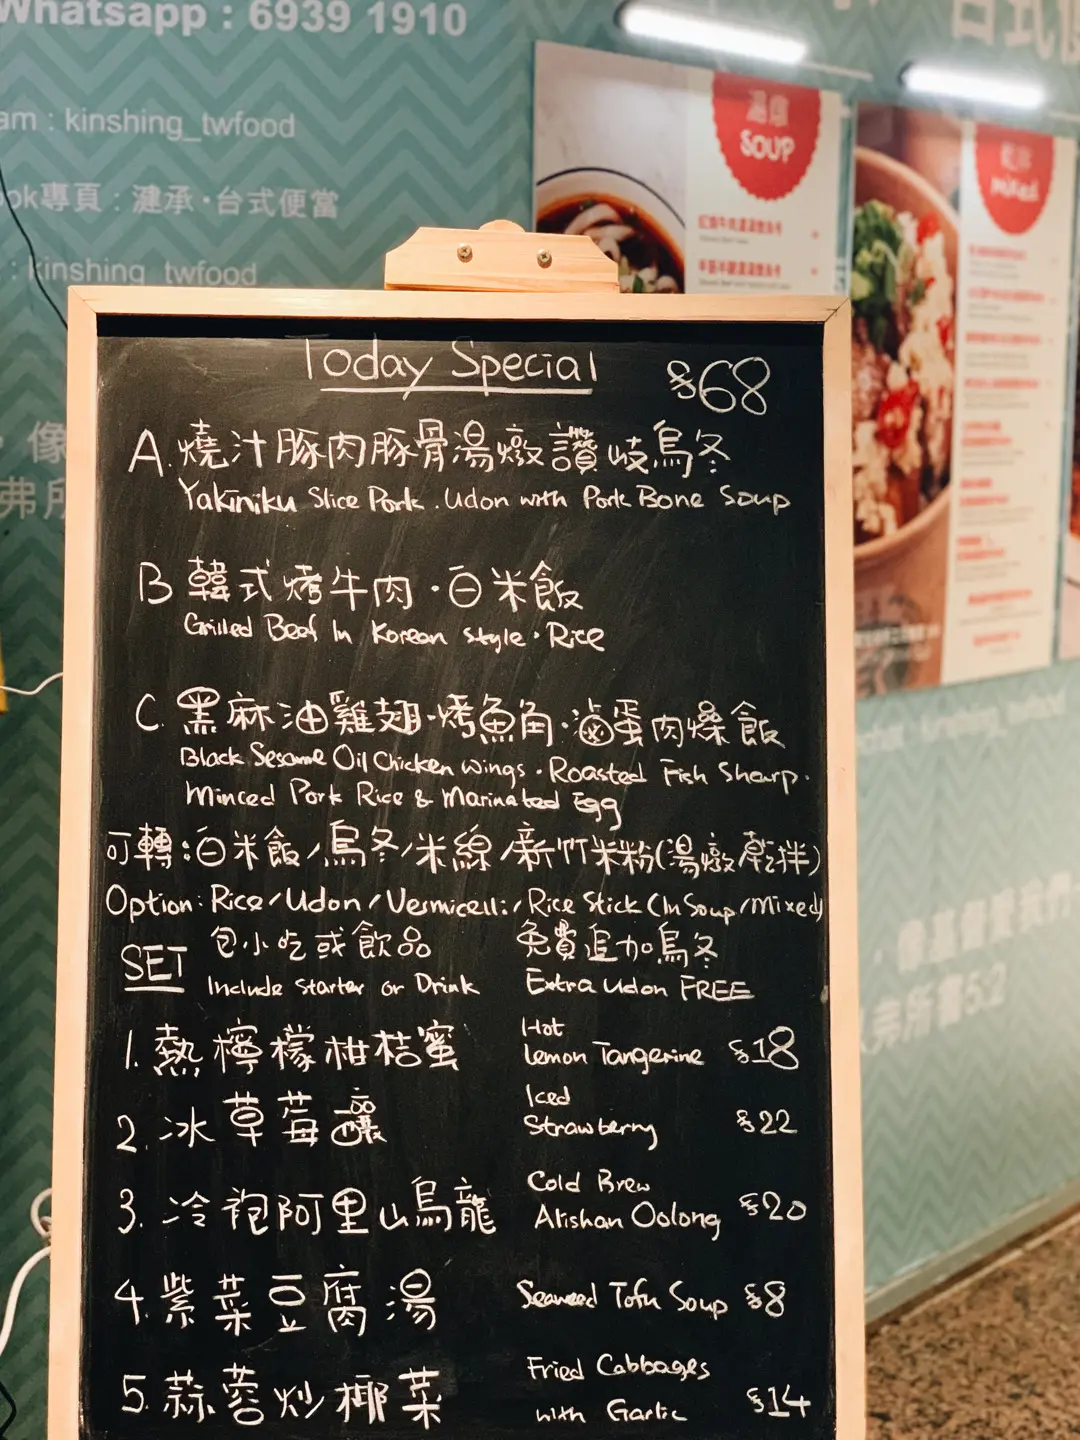 Whatsapp : 6939 1910
am : kinshing_twfood
ok專頁 : 漣承·台式便當
: kinshing_twfood
湯燉
SOUP
mixed
Today Special $68
A. 燒汁豚肉豚骨湯燉讚岐烏冬
Yakiniku Slice Pork . Udon with Pork Bone Soup
B 韓式烤牛肉·白米飯
Grilled Beef In Korean Style · Rice
C. 黑麻油雞翅·烤魚角·滷蛋肉燥飯
Black Sesame Oil Chicken Wings · Roasted Fish Sharp ·
Minced Pork Rice & Marinated Egg
可轉:白米飯/烏冬/米線/新竹米粉(湯燉/乾拌)
Option: Rice/Udon/Vermicelli/Rice Stick (In Soup/Mixed)
SET 包小吃或飲品 免費追加烏冬
Include Starter or Drink Extra Udon FREE
1. 熱檸檬柑桔蜜 Hot Lemon Tangerine $18
2. 冰草莓釀 Iced Strawberry $22
3. 冷袍阿里山烏龍 Cold Brew Alishan Oolong $20
4. 紫菜豆腐湯 Seaweed Tofu Soup $8
5. 蒜蓉炒椰菜 Fried Cabbages with Garlic $14